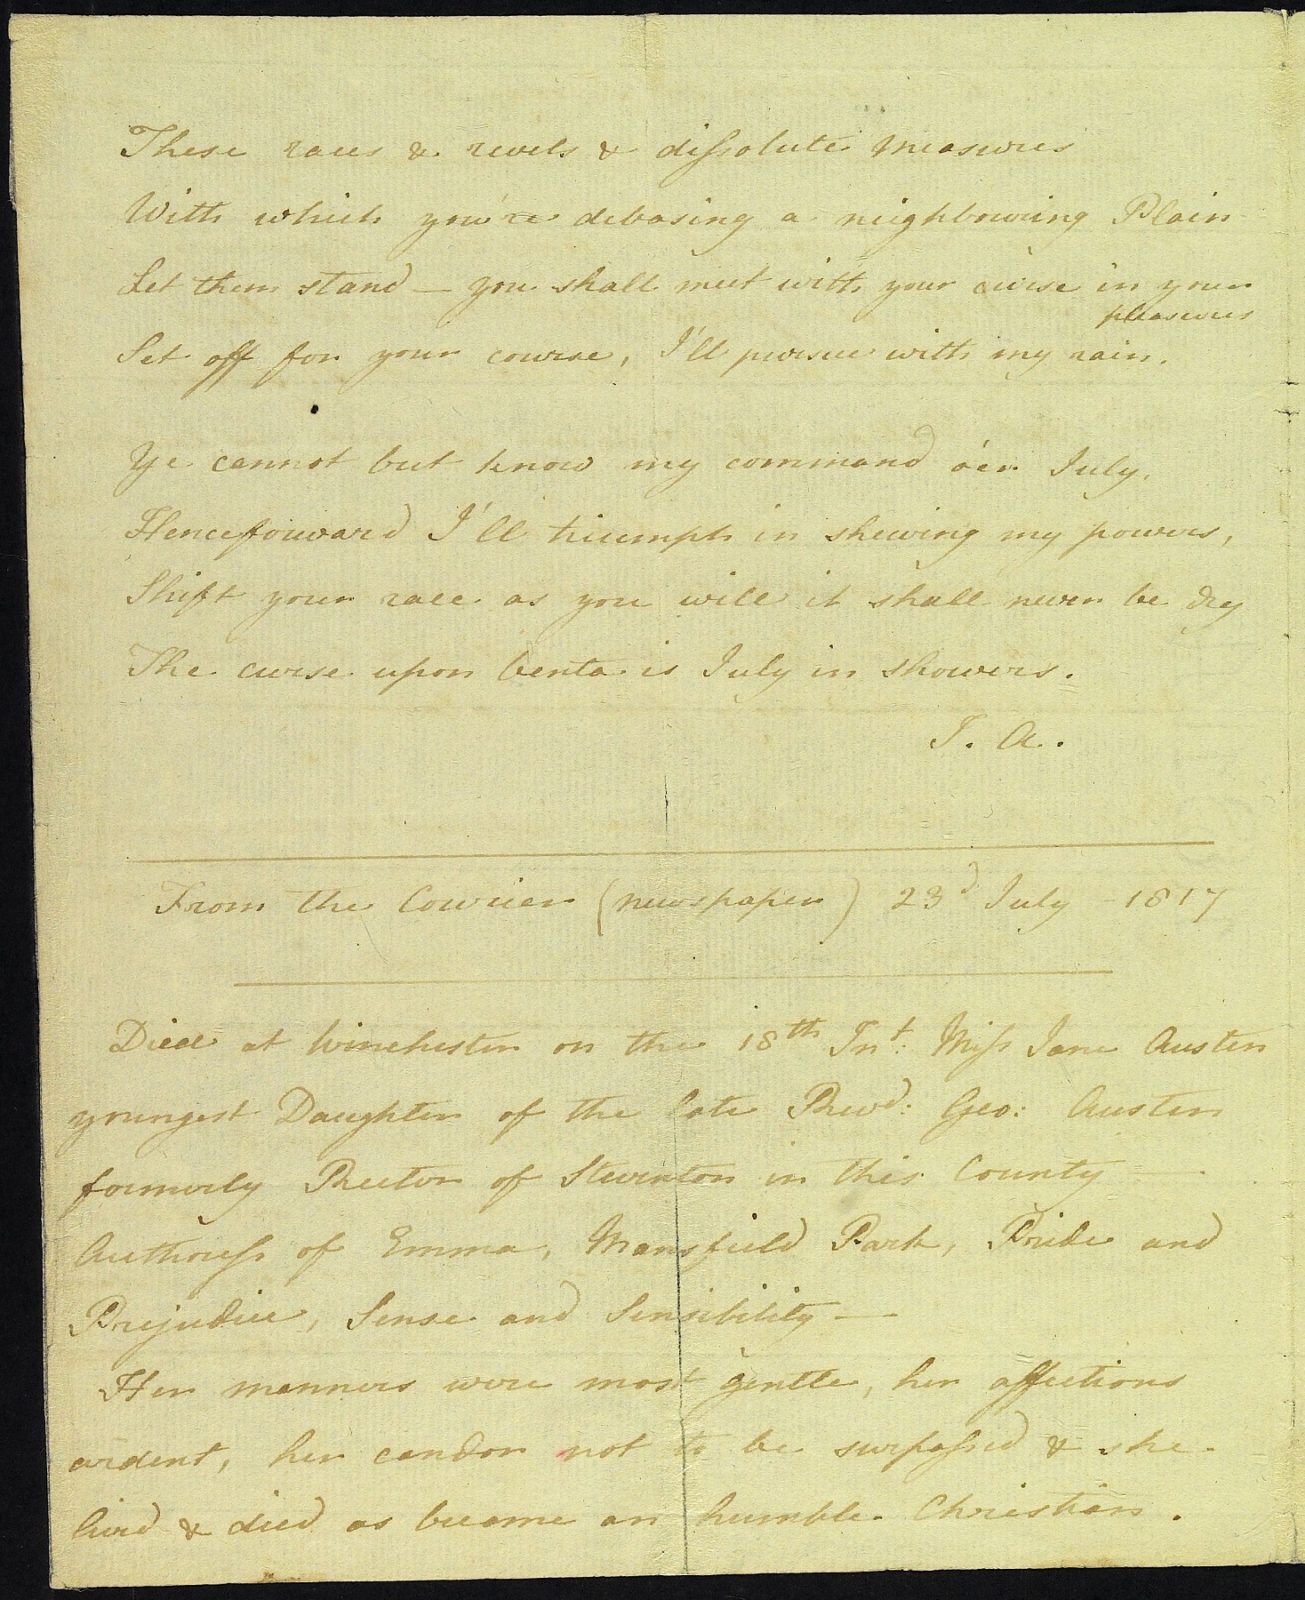 These races & revels & dissolute measures
With which you're debasing a neighbouring Plain
Let them stand — you shall meet with your curse in your
pleasures
Set off for your course, I'll pursue with my rain.
Ye cannot but know my command o'er July,
Henceforward I'll triumph in shewing my powers,
Shift your race as you will it shall never be dry
The curse upon Venta is July in showers.
J. A.
From the Courier (newspaper) 23d July - 1817
Died at Winchester on the 18th Int: Miss Jane Austen
youngest Daughter of the late Revd: Geo: Austen
formerly Rector of Steventon in this County —
Authoress of Emma, Mansfield Park, Pride and
Prejudice, Sense and Sensibility —
Her manners were most gentle, her affections
ardent, her candor not to be surpassed & she
lived & died as became an humble Christian.